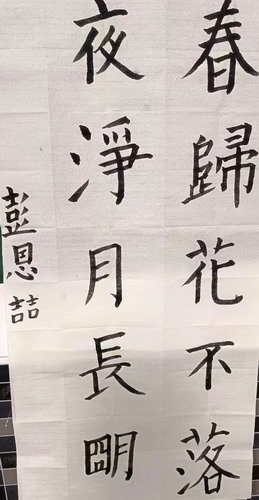 春歸花不落
夜淨月長朙
彭恩喆